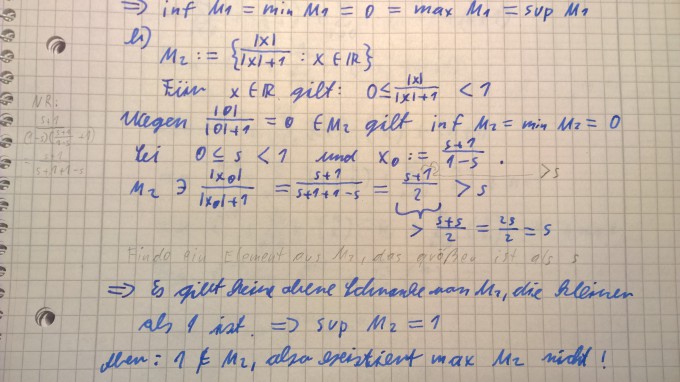 ⇒ inf M₁ = min M₁ = 0 = max M₁ = sup M₁
b)
M₂ := {|x|/(|x|+1) : x ∈ ℝ}
Für x ∈ ℝ gilt: 0 ≤ |x|/(|x|+1) < 1
Wegen |0|/(|0|+1) = 0 ∈ M₂ gilt inf M₂ = min M₂ = 0
Sei 0 ≤ s < 1 und x₀ := (s+1)/(1-s) .
> s
M₂ ∋ |x₀|/(|x₀|+1) = (s+1)/(s+1+1-s) = (s+1)/2 > s
> (s+s)/2 = 2s/2 = s
NR:
s+1
s+1+1-s
Finde ein Element aus M₂, das größer ist als s
⇒ Es gibt keine obere Schranke von M₂, die kleiner
als 1 ist. ⇒ sup M₂ = 1
Aber: 1 ∉ M₂, also existiert max M₂ nicht!